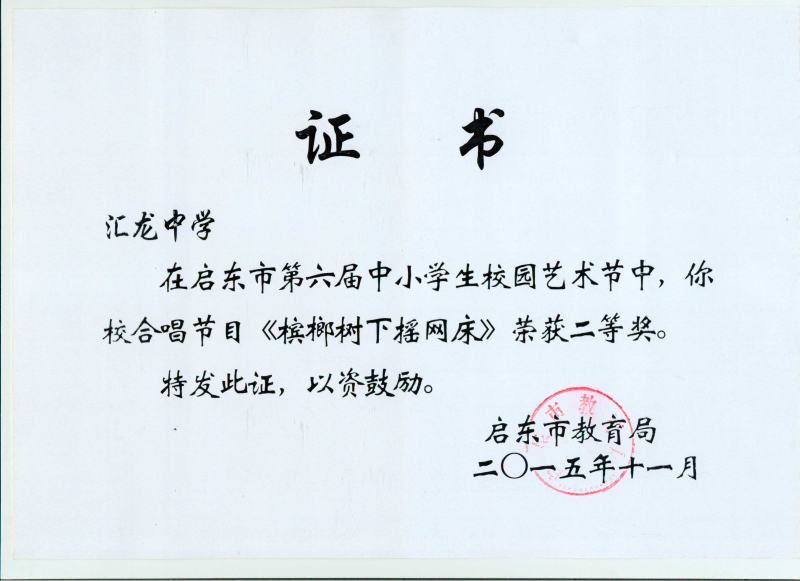 证 书
汇龙中学
在启东市第六届中小学生校园艺术节中，你
校合唱节目《槟榔树下摇网床》荣获二等奖。
特发此证，以资鼓励。
市教
启东市教育局
二〇一五年十一月